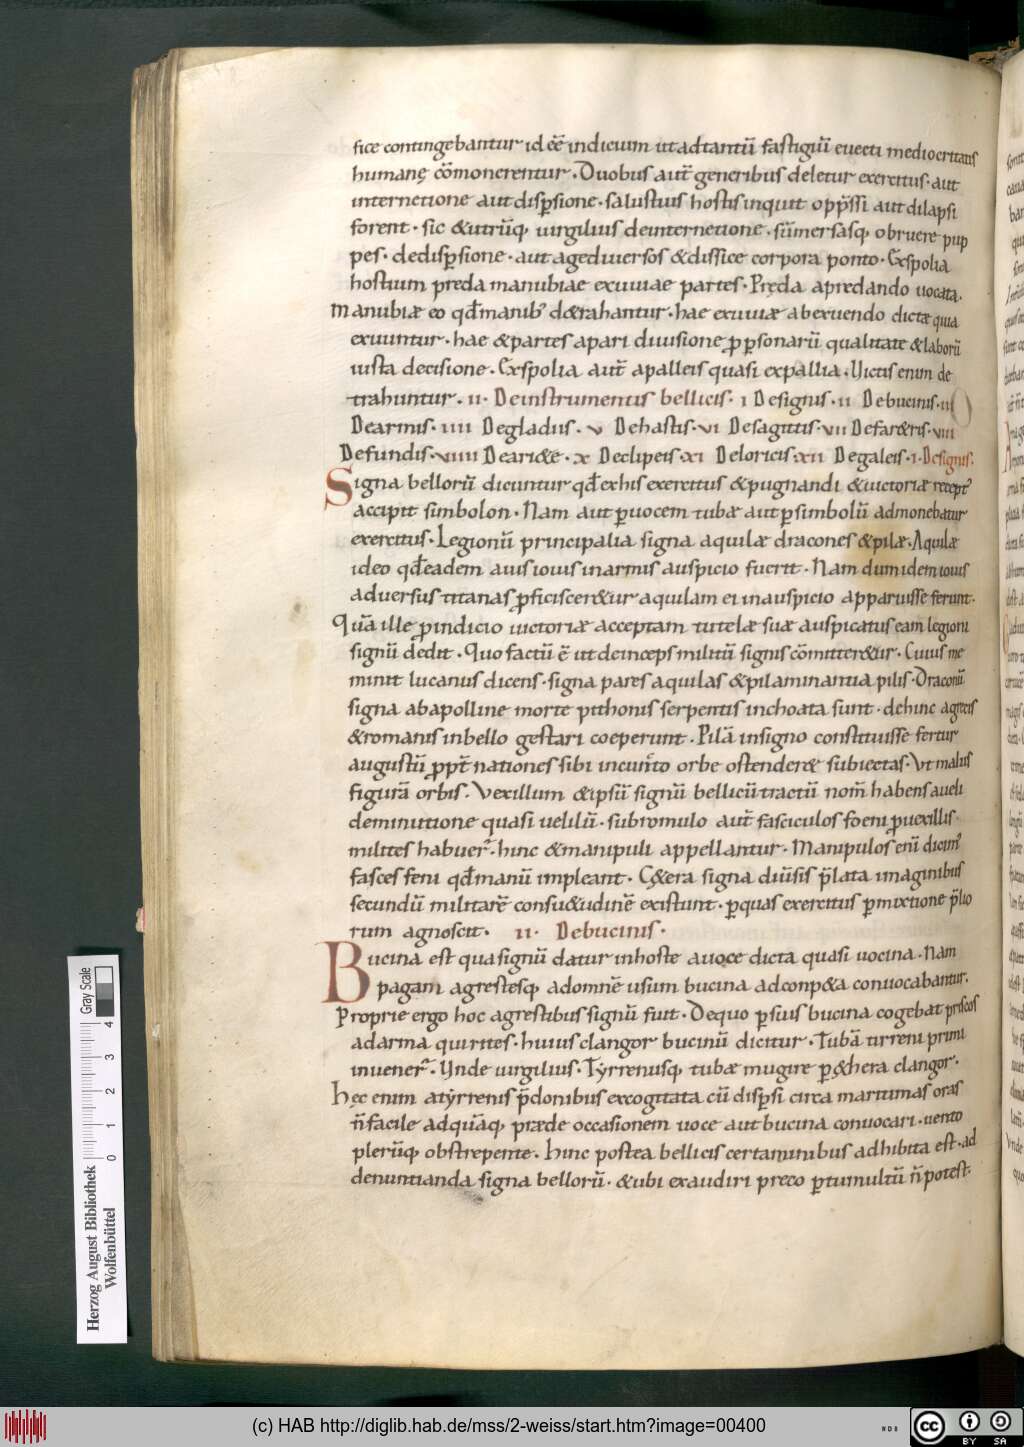 fice contingebantur id ee̅ indicium ut ad tantu̅ fastigiu̅ euecti mediocritatis
humanę co̅monerentur. Duobus aut̅ generibus deletur exercitus. aut
internetione aut disp̱sione. salustius hostis inquit opp̅ssi aut dilapsi
forent. sic &utru̅q; uirgilius deinternetione. su̅mersasq; obruere pup
pes. dedisp̱sione. aut age diuersos &dissice corpora ponto. Exspolia
hostium preda manubiae exuuiae partes. Pręda apredando uocata.
Manubiæ eo qđ manib; d&rahantur. hae exuuiæ abexuendo dictæ quia
exuuntur. hae &partes apari diuisione ꝓ p̱sonaru̅ qualitate &laboru̅
iusta decisione. Exspolia aut̅ apalleis quasi expallia. Victis enim de
trahuntur. II. Deinstrumentis bellicis. I Designis. II Debucinis. III
Dearmis. IIII Degladiis. V Dehastis. VI Desagittis. VII Defar&ris. VIII
Defundis. VIIII Deari&e. X Declipeis. XI Deloricis. XII Degaleis. I. Designis.
Signa belloru̅ dicuntur qđ exhis exercitus &pugnandi &uictoriæ recept;
accipit simbolon. Nam aut p̱uocem tubæ aut p̱simbolu̅ admonebatur
exercitus. Legionu̅ principalia signa aquilæ dracones &pilæ. Aquilæ
ideo qđ eadem auis iouis inarmis auspicio fuerit. Nam dum idem iouis
aduersus titanas ꝓficiscer&ur aquilam ei inauspicio apparuisse ferunt.
Qua̅ ille ꝓindicio uictoriæ acceptam tutelæ suæ auspicatus eam legioni
signu̅ dedit. Quo factu̅ e̅ ut deinceps militu̅ signis co̅mitter&ur. Cuius me
minit lucanus dicens. signa pares aquilas &pila minantia pilis. Draconu̅
signa abapolline morte pithonis serpentis inchoata sunt. dehinc agrecis
&romanis inbello gestari coeperunt. Pila̅ insigno constituisse fertur
augustu̅ ꝓpt̅ nationes sibi incun̅to orbe ostender& subiectas. Vt malus
figura̅ orbis. Vexillum &ipsu̅ signu̅ bellicu̅ tractu̅ nom̅ habens aueli
deminutione quasi uelilu̅. subromulo aut̅ fasciculos foeni ꝓuexillis
milites habuer̅. hinc &manipuli appellantur. Manipulos eni̅ dicim;
fasces feni qđ manu̅ impleant. C&era signa diu̅sis p̅lata imaginibus
secundu̅ militare̅ consu&udine̅ existunt. p̱quas exercitus p̱mixtione p̅lio
rum agnoscit. II. Debucinis.
Bucina est qua signu̅ datur inhoste auoce dicta quasi uocina. Nam
pagani agrestesq; adomne̅ usum bucina adconp&a conuocabantur.
Proprie ergo hoc agrestibus signu̅ fuit. Dequo p̱sius bucina cogebat priscos
adarma quirites. huius clangor bucinu̅ dicitur. Tuba̅ tirreni primi
inuener̅. Vnde uirgilius. Tyrrenusq; tubæ mugire p̱&hera clangor.
Hęc enim atyrrenis p̅donibus excogitata cu̅ disp̱si circa maritimas oras
n̅ facile adqua̅q; præde occasionem uoce aut bucina conuocari. uento
pleru̅q; obstrepente. hinc postea bellicis certaminibus adhibita est. ad
denuntianda signa belloru̅. &ubi exaudiri preco p̱tumultu̅ n̅ potest.
Herzog August Bibliothek
Wolfenbüttel
0 1 2 3 4
Gray Scale
(c) HAB http://diglib.hab.de/mss/2-weiss/start.htm?image=00400
cc BY SA